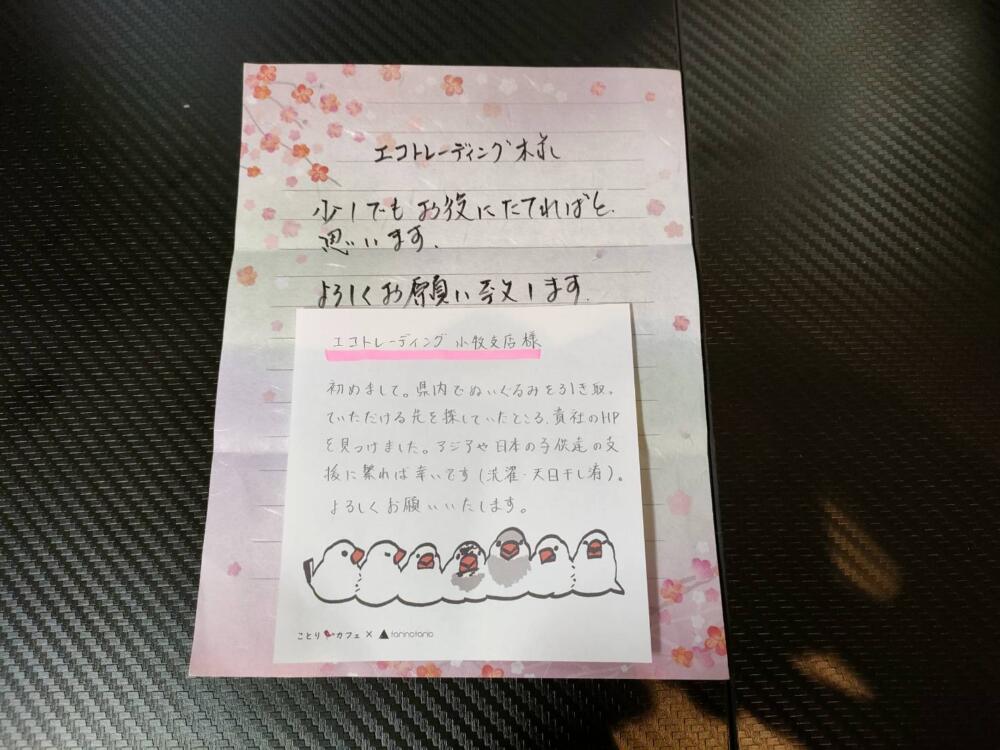 エコトレーディング様
少しでもお役にたてればと
思います.
よろしくお願い致します.
エコトレーディング 小牧支店様
初めまして。県内でぬいぐるみを引き取っ
ていただける先を探していたところ、貴社のHP
を見つけました。アジアや日本の子供達の支
援に繋れば幸いです(洗濯・天日干し済)。
よろしくお願いいたします。
ことりカフェ × torinotorio